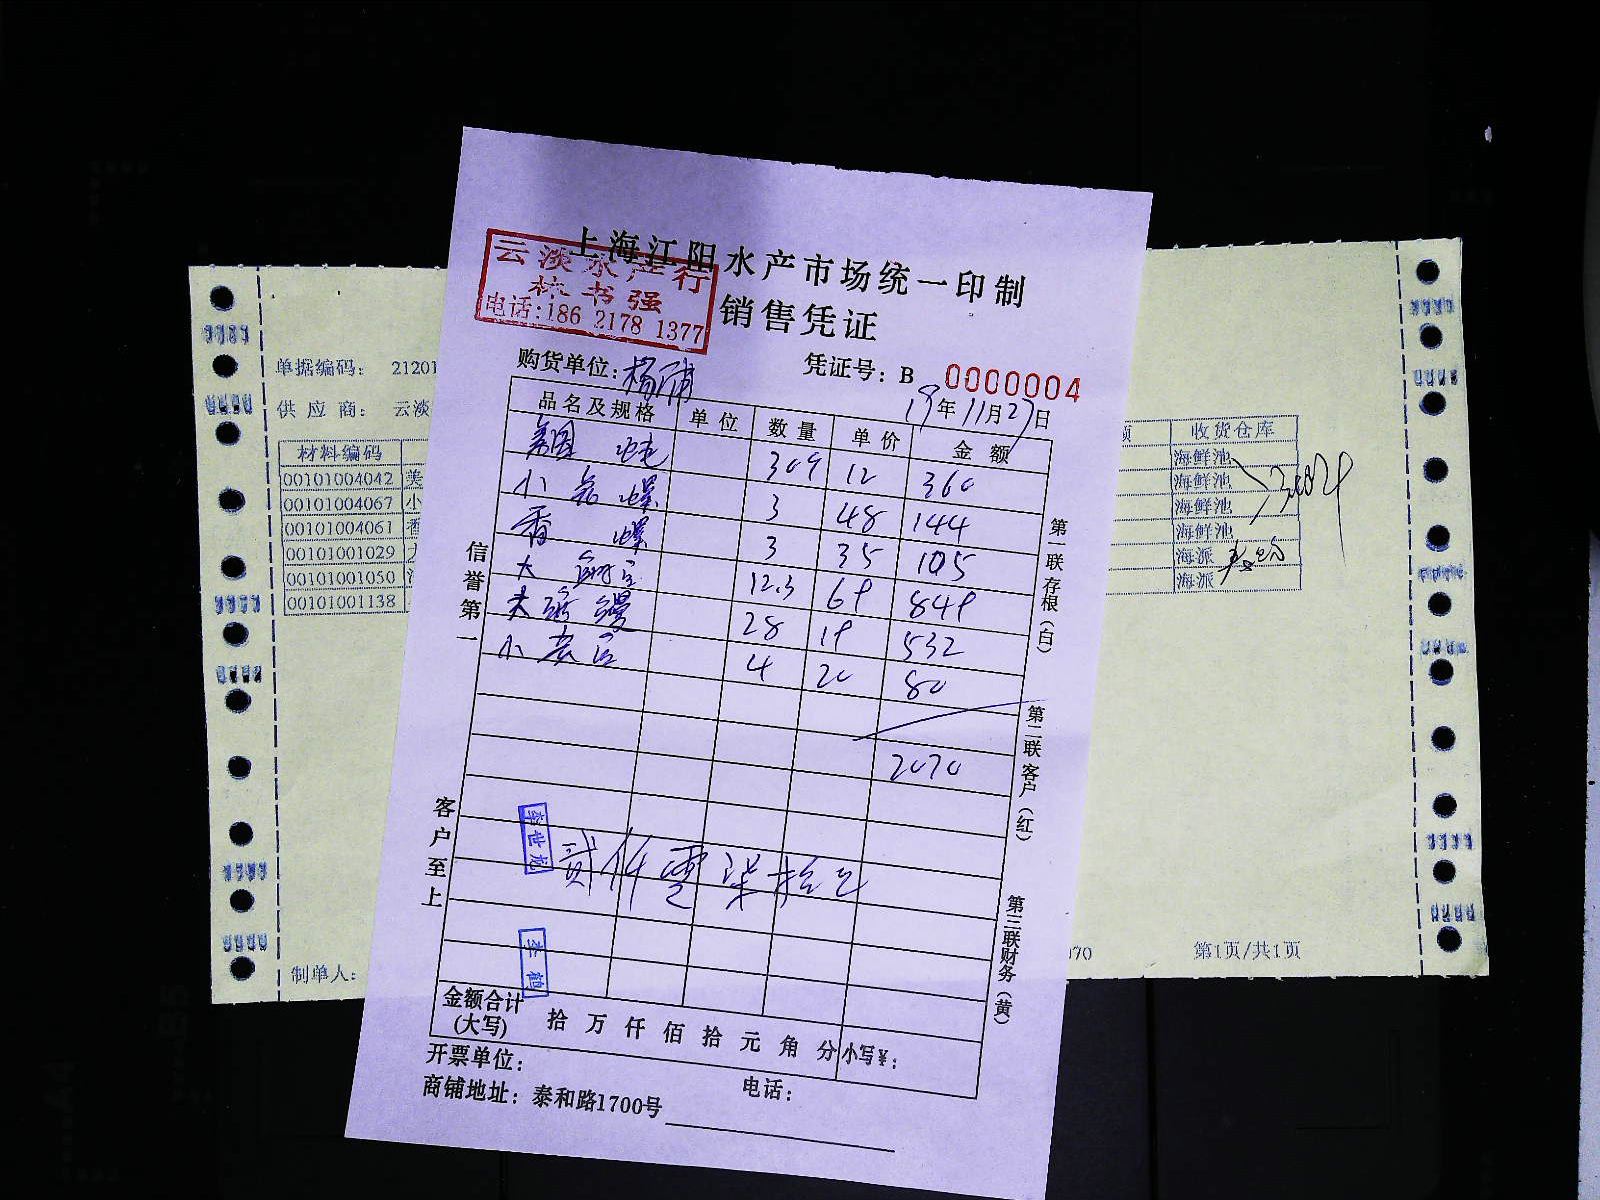 上海江阳水产市场统一印制
销售凭证
云淡水产行
林书强
电话:186 2178 1377
购货单位:杨浦
凭证号: B 0000004
19年11月27日
品名及规格 单位 数量 单价 金额
美国 12 360
小 螺 3 48 144
香 螺 3 35 105
大 12.3 69 849
28 19 532
小 4 20 80
2070
贰仟零柒拾元
李世龙
李鹤
金额合计
(大写)
拾 万 仟 佰 拾 元 角 分 小写¥:
开票单位:
电话:
商铺地址: 泰和路1700号
信誉第一
客户至上
第一联存根(白)
第二联客户(红)
第三联财务(黄)
单据编码: 21201
供 应 商: 云淡
材料编码
00101004042 美
00101004067 小
00101004061 香
00101001029
00101001050
00101001138
制单人:
额 收货仓库
海鲜池
海鲜池
海鲜池
海鲜池
海派
海派
070
第1页/共1页